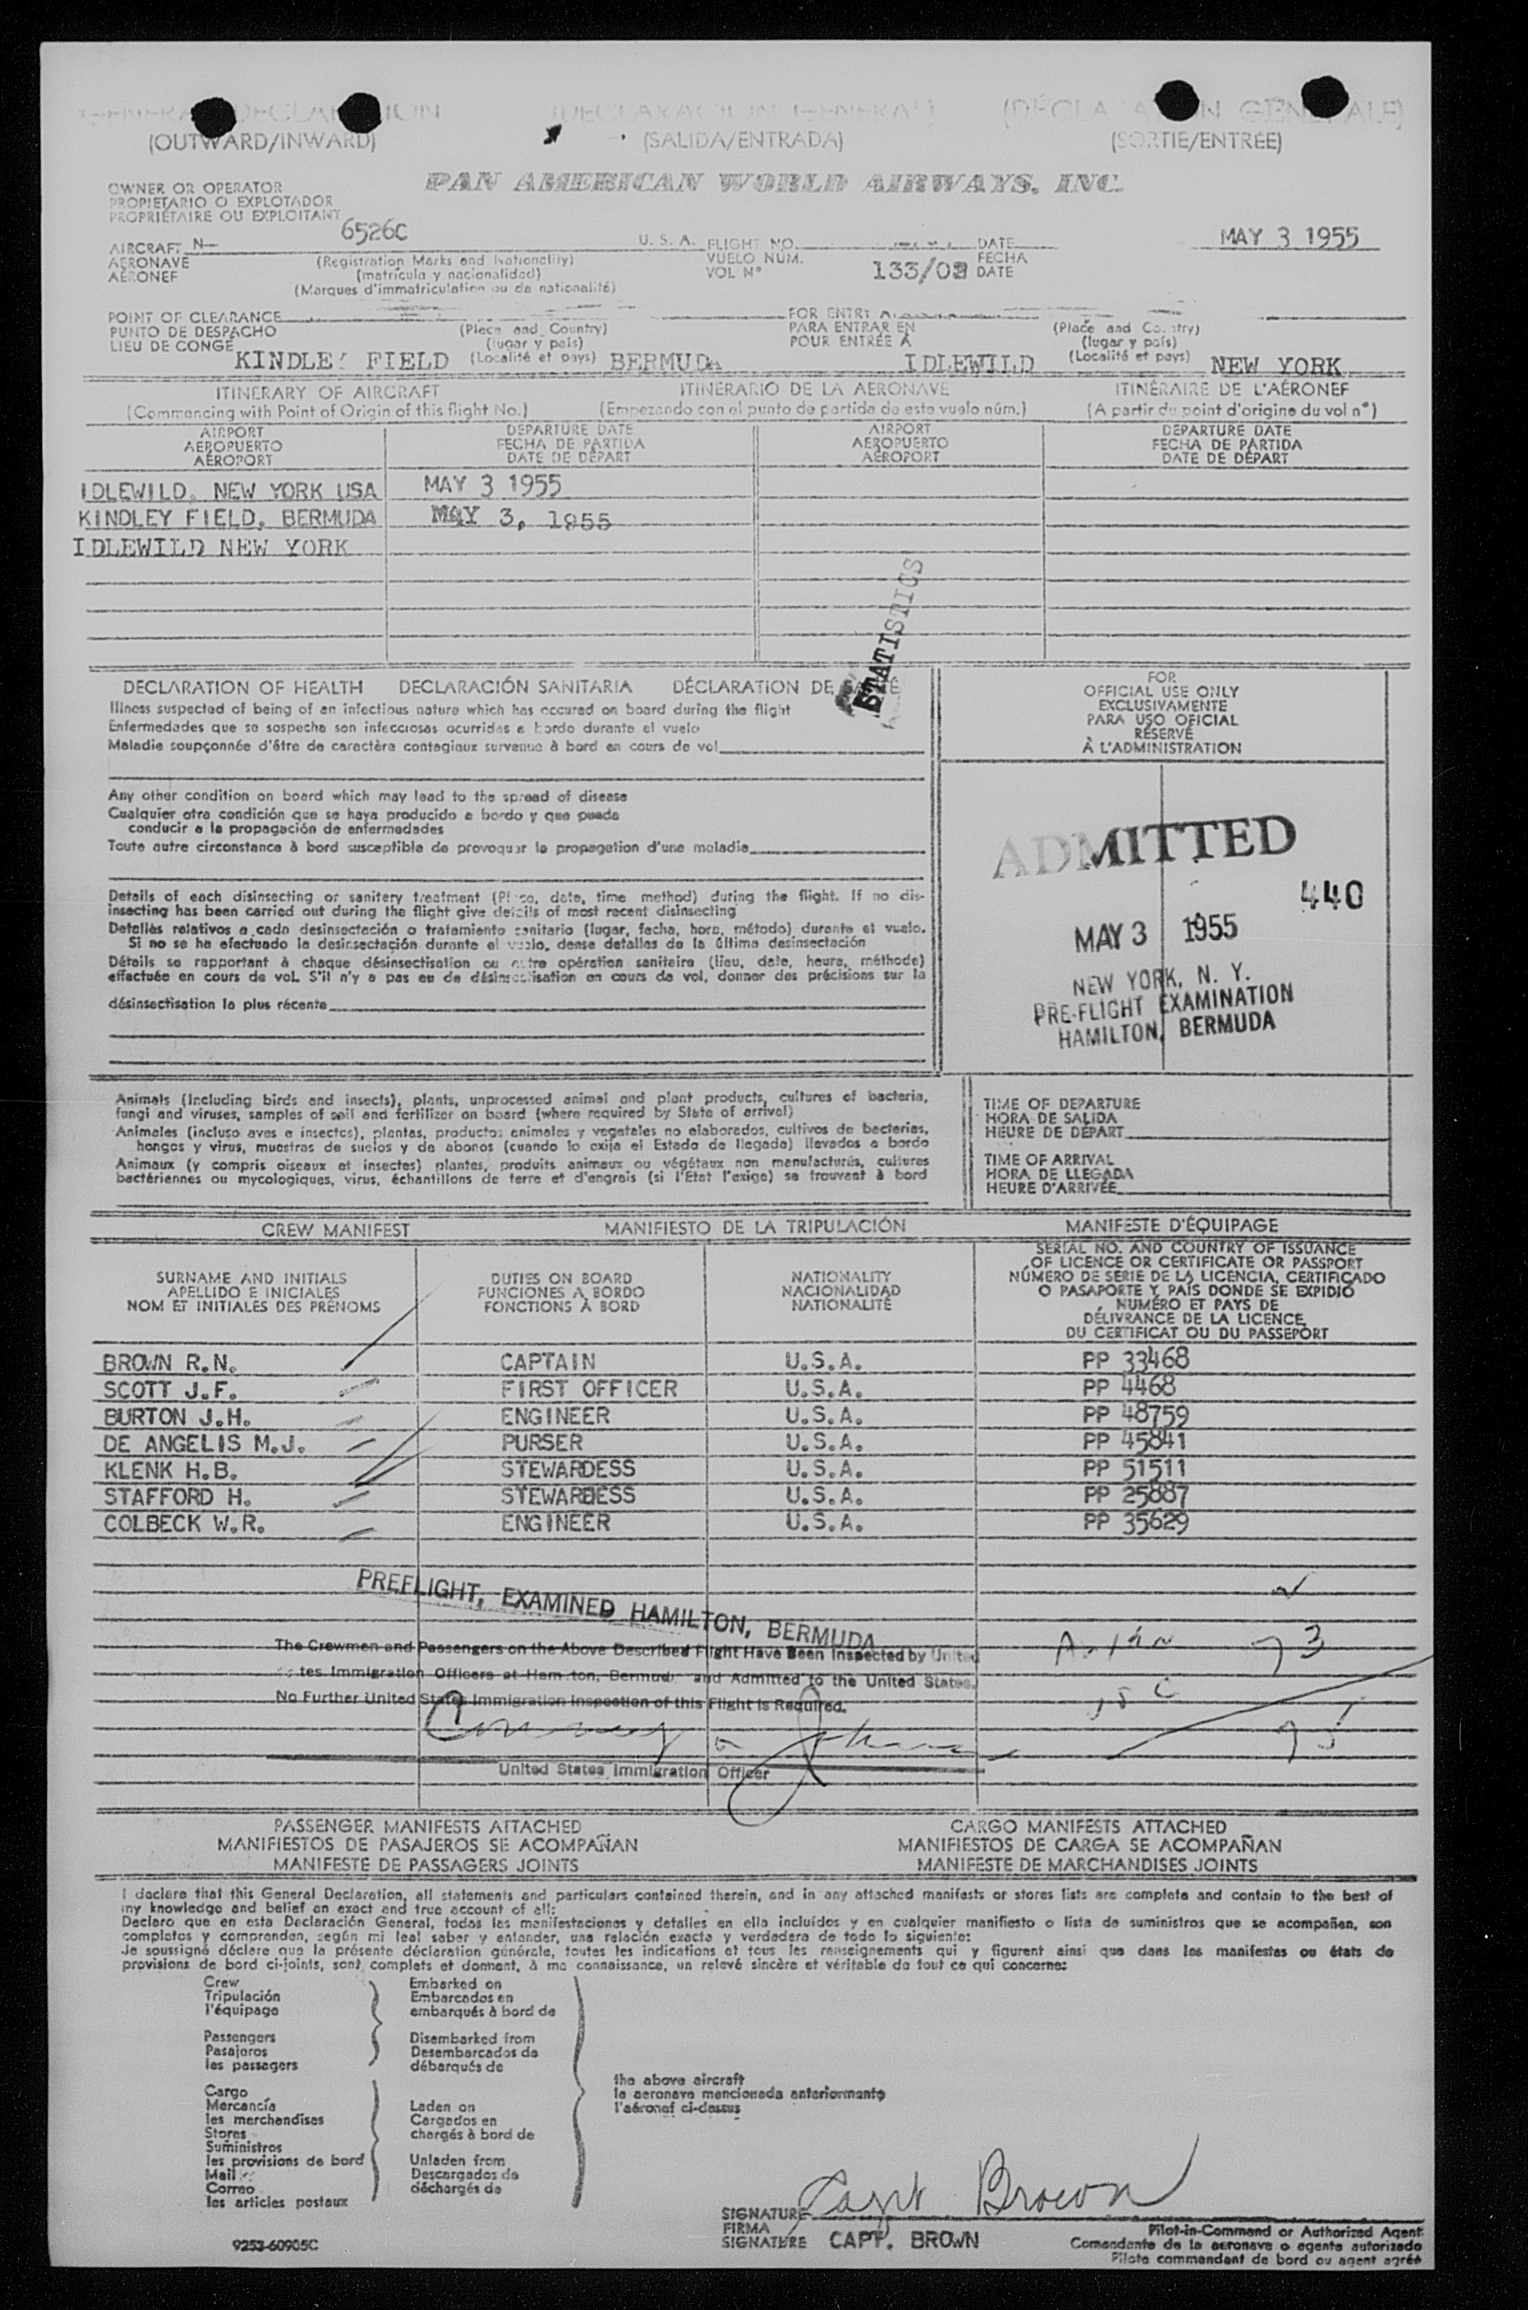 GENERAL DECLARATION (DECLARACION GENERAL) (DÉCLARATION GÉNÉRALE)
(OUTWARD/INWARD) (SALIDA/ENTRADA) (SORTIE/ENTRÉE)
OWNER OR OPERATOR PAN AMERICAN WORLD AIRWAYS, INC.
PROPIETARIO O EXPLOTADOR
PROPRIÉTAIRE OU EXPLOITANT
AIRCRAFT N- 6526C U. S. A. FLIGHT NO. DATE MAY 3 1955
AERONAVE (Registration Marks and Nationality) VUELO NUM. 133/03 FECHA
AÉRONEF (matrícula y nacionalidad) VOL Nº DATE
(Marques d'immatriculation ou de nationalité)
POINT OF CLEARANCE FOR ENTRY A
PUNTO DE DESPACHO (Place and Country) PARA ENTRAR EN (Place and Country)
LIEU DE CONGÉ (lugar y país) POUR ENTRÉE A (lugar y país)
KINDLEY FIELD (Localité et pays) BERMUDA IDLEWILD (Localité et pays) NEW YORK
ITINERARY OF AIRCRAFT ITINERARIO DE LA AERONAVE ITINÉRAIRE DE L'AÉRONEF
(Commencing with Point of Origin of this flight No.) (Empezando con el punto de partida de este vuelo núm.) (A partir du point d'origine du vol nº)
AIRPORT DEPARTURE DATE AIRPORT DEPARTURE DATE
AEROPUERTO FECHA DE PARTIDA AEROPUERTO FECHA DE PARTIDA
AÉROPORT DATE DE DÉPART AÉROPORT DATE DE DÉPART
IDLEWILD, NEW YORK USA MAY 3 1955
KINDLEY FIELD, BERMUDA MAY 3, 1955
IDLEWILD NEW YORK
STATISTICS
DECLARATION OF HEALTH DECLARACIÓN SANITARIA DÉCLARATION DE SANTÉ
Illness suspected of being of an infectious nature which has occured on board during the flight
Enfermedades que se sospecha son infecciosas ocurridas a bordo durante el vuelo
Maladie soupçonnée d'être de caractère contagieux survenue à bord en cours de vol
Any other condition on board which may lead to the spread of disease
Cualquier otra condición que se haya producido a bordo y que pueda
conducir a la propagación de enfermedades
Toute autre circonstance à bord susceptible de provoquer la propagation d'une maladie
Details of each disinsecting or sanitary treatment (Place, date, time method) during the flight. If no dis-
insecting has been carried out during the flight give details of most recent disinsecting
Detalles relativos a cada desinsectación o tratamiento sanitario (lugar, fecha, hora, método) durante el vuelo.
Si no se ha efectuado la desinsectación durante el vuelo, dense detalles de la última desinsectación
Détails se rapportant à chaque désinsectisation ou autre opération sanitaire (lieu, date, heure, méthode)
effectuée en cours de vol. S'il n'y a pas eu de désinsectisation en cours de vol, donner des précisions sur la
désinsectisation la plus récente
FOR
OFFICIAL USE ONLY
EXCLUSIVAMENTE
PARA USO OFICIAL
RÉSERVÉ
À L'ADMINISTRATION
ADMITTED
440
MAY 3 1955
NEW YORK, N. Y.
PRE-FLIGHT EXAMINATION
HAMILTON, BERMUDA
Animals (Including birds and insects), plants, unprocessed animal and plant products, cultures of bacteria,
fungi and viruses, samples of soil and fertilizer on board (where required by State of arrival)
Animales (incluso aves e insectos), plantas, productos animales y vegetales no elaborados, cultivos de bacterias,
hongos y virus, muestras de suelos y de abonos (cuando lo exija el Estado de llegada) llevados a bordo
Animaux (y compris oiseaux et insectes) plantes, produits animaux ou végétaux non manufacturés, cultures
bactériennes ou mycologiques, virus, échantillons de terre et d'engrais (si l'Etat l'exige) se trouvant à bord
TIME OF DEPARTURE
HORA DE SALIDA
HEURE DE DÉPART
TIME OF ARRIVAL
HORA DE LLEGADA
HEURE D'ARRIVÉE
CREW MANIFEST MANIFIESTO DE LA TRIPULACIÓN MANIFESTE D'ÉQUIPAGE
SURNAME AND INITIALS DUTIES ON BOARD NATIONALITY
APELLIDO E INICIALES FUNCIONES A BORDO NACIONALIDAD
NOM ET INITIALES DES PRÉNOMS FONCTIONS À BORD NATIONALITÉ
SERIAL NO. AND COUNTRY OF ISSUANCE
OF LICENCE OR CERTIFICATE OR PASSPORT
NÚMERO DE SERIE DE LA LICENCIA, CERTIFICADO
O PASAPORTE Y PAIS DONDE SE EXPIDIÓ
NUMÉRO ET PAYS DE
DÉLIVRANCE DE LA LICENCE,
DU CERTIFICAT OU DU PASSEPORT
BROWN R.N. CAPTAIN U.S.A. PP 33468
SCOTT J.F. FIRST OFFICER U.S.A. PP 4468
BURTON J.H. ENGINEER U.S.A. PP 48759
DE ANGELIS M.J. PURSER U.S.A. PP 45841
KLENK H.B. STEWARDESS U.S.A. PP 51511
STAFFORD H. STEWARDESS U.S.A. PP 25887
COLBECK W.R. ENGINEER U.S.A. PP 35629
PREFLIGHT, EXAMINED HAMILTON, BERMUDA
The Crewmen and Passengers on the Above Described Flight Have Been Inspected by United
States Immigration Officers at Hamilton, Bermuda and Admitted to the United States.
No Further United States Immigration Inspection of this Flight is Required.
73
United States Immigration Officer
PASSENGER MANIFESTS ATTACHED CARGO MANIFESTS ATTACHED
MANIFIESTOS DE PASAJEROS SE ACOMPAÑAN MANIFIESTOS DE CARGA SE ACOMPAÑAN
MANIFESTE DE PASSAGERS JOINTS MANIFESTE DE MARCHANDISES JOINTS
I declare that this General Declaration, all statements and particulars contained therein, and in any attached manifests or stores lists are complete and contain to the best of
my knowledge and belief an exact and true account of all:
Declaro que en esta Declaración General, todas las manifestaciones y detalles en ella incluídos y en cualquier manifiesto o lista de suministros que se acompañen, son
completos y comprenden, según mi leal saber y entender, una relación exacta y verdadera de todo lo siguiente:
Je soussigné déclare que la présente déclaration générale, toutes les indications et tous les renseignements qui y figurent ainsi que dans les manifestes ou états de
provisions de bord ci-joints, sont complets et donnent, à ma connaissance, un relevé sincère et véritable de tout ce qui concerne:
Crew Embarked on
Tripulación Embarcados en
l'équipage embarqués à bord de
Passengers Disembarked from
Pasajeros Desembarcados de
les passagers débarqués de
the above aircraft
la aeronave mencionada anteriormente
l'aéronef ci-dessus
Cargo
Mercancía Laden on
les merchandises Cargados en
Stores chargés à bord de
Suministros
les provisions de bord Unladen from
Mail Descargados de
Correo déchargés de
les articles postaux
SIGNATURE Capt Brown
FIRMA Pilot-in-Command or Authorized Agent
SIGNATURE CAPT. BROWN Comandante de la aeronave o agente autorizado
9253-60905C Pilote commandant de bord ou agent agréé